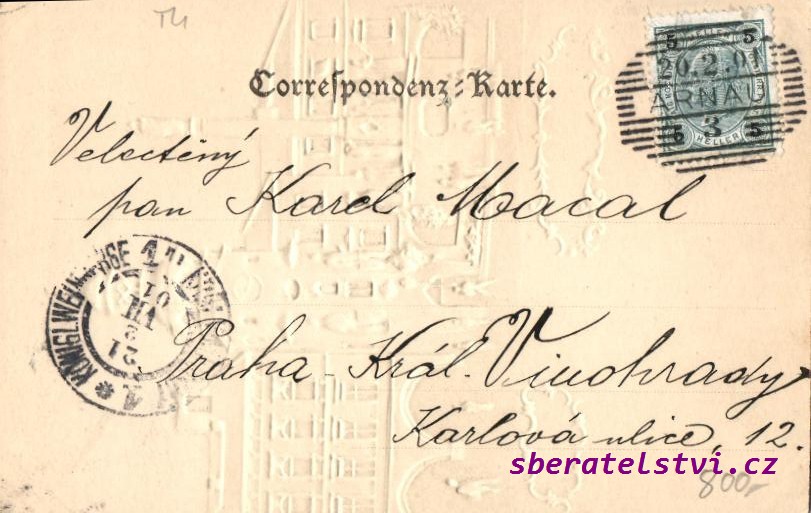 TU
Correspondenz-Karte.
5 HELLER 5
20.2.01
ARNAU
3
5 HELLER 5
Velectěný
pan Karel Macal
KÖNIGL. WEINBERGE 1
21
2
VII
01
Praha - Král. Vinohrady
Karlová ulice, 12.
sberatelstvi.cz
800,-